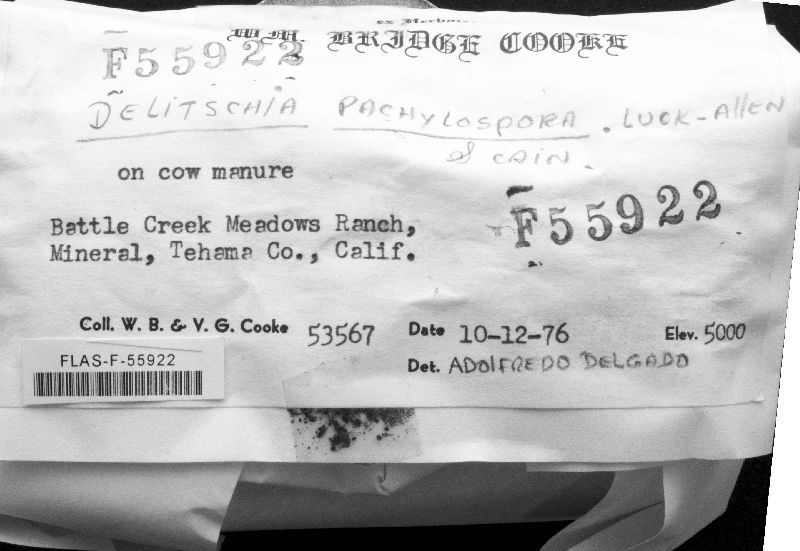 ex Herbar
WM. BRIDGE COOKE
F55922
DELITSCHIA PACHYLOSPORA . LUCK-AllEN
& CAIN.
on cow manure
F55922
Battle Creek Meadows Ranch,
Mineral, Tehama Co., Calif.
Coll. W. B. & V. G. Cooke 53567 Date 10-12-76 Elev. 5000
Det. ADOLFREDO DELGADO
FLAS-F-55922